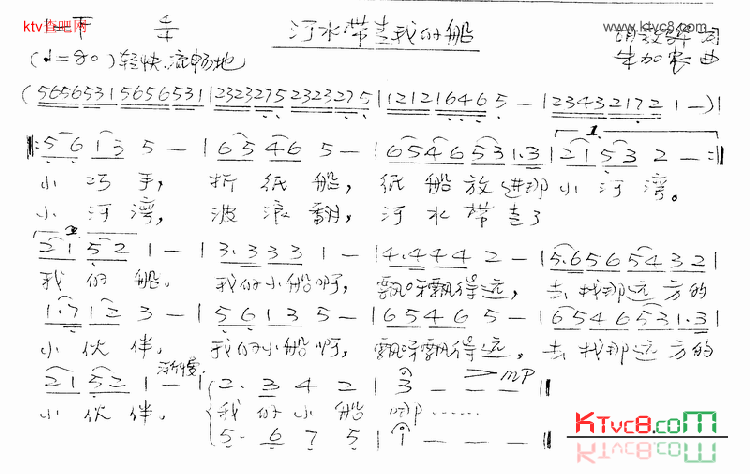 ktv查吧网
www.ktvc8.com
1=F 2/4
河水带走我的船
(♩=80) 轻快、流畅地
牛加农 曲
(5656531 5656531 | 2323275 2323275 | 121216465 - | 234321721 - )|
1.
‖: 5 6 1 3 5 - | 6 5 4 6 5 - | 6 5 4 6 5 3 1.3 | 2 1 5 3 2 - :‖
小巧手, 折纸船, 纸船放进那小河湾。
小河湾, 波浪翻, 河水带走了
2.
2 1 5 2 1 - | 3. 3 3 3 1 - | 4. 4 4 4 2 - | 5. 6 5 6 5 4 3 2 |
我的船。 我的小船啊, 飘呀飘得远, 去找那远方的
1. 7 1 2 3 - | 5 6 1 3 5 - | 6 5 4 6 5 - | 6 5 4 6 5 3 1.3 |
小伙伴, 我的小船啊, 飘呀飘得远。去找那远方的
渐慢
2 1 5 2 1 - | 2. 3 4 2 | 3 - - - ‖ mp
小伙伴。 我的小船 啊……
5. 6 7 5 | 1 - - - ‖
KTvc8.com